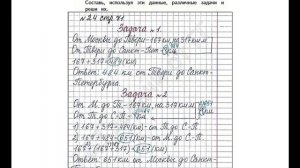 Составь, используя эти данные, различные задачи и
реши их.
№ 24 стр 71
Задача №1
От Москвы до Твери - 167 км, на 317 км
От Твери до Санкт-Пит
167 + 317 = 484 (км)
Ответ: 484 км от Твери до Санкт-
Петербурга.
Задача №2
От М. до Т. - 167 км, на 317 км
От Т. до С.-П.
1) 167 + 317 = 484 (км) - от Т. до С.-П.
2) 167 + 484 = 651 (км) - от М. до С.-П.
167 + (167 + 317) = 651 (км)
Ответ: 651 км от Москвы до Санкт-